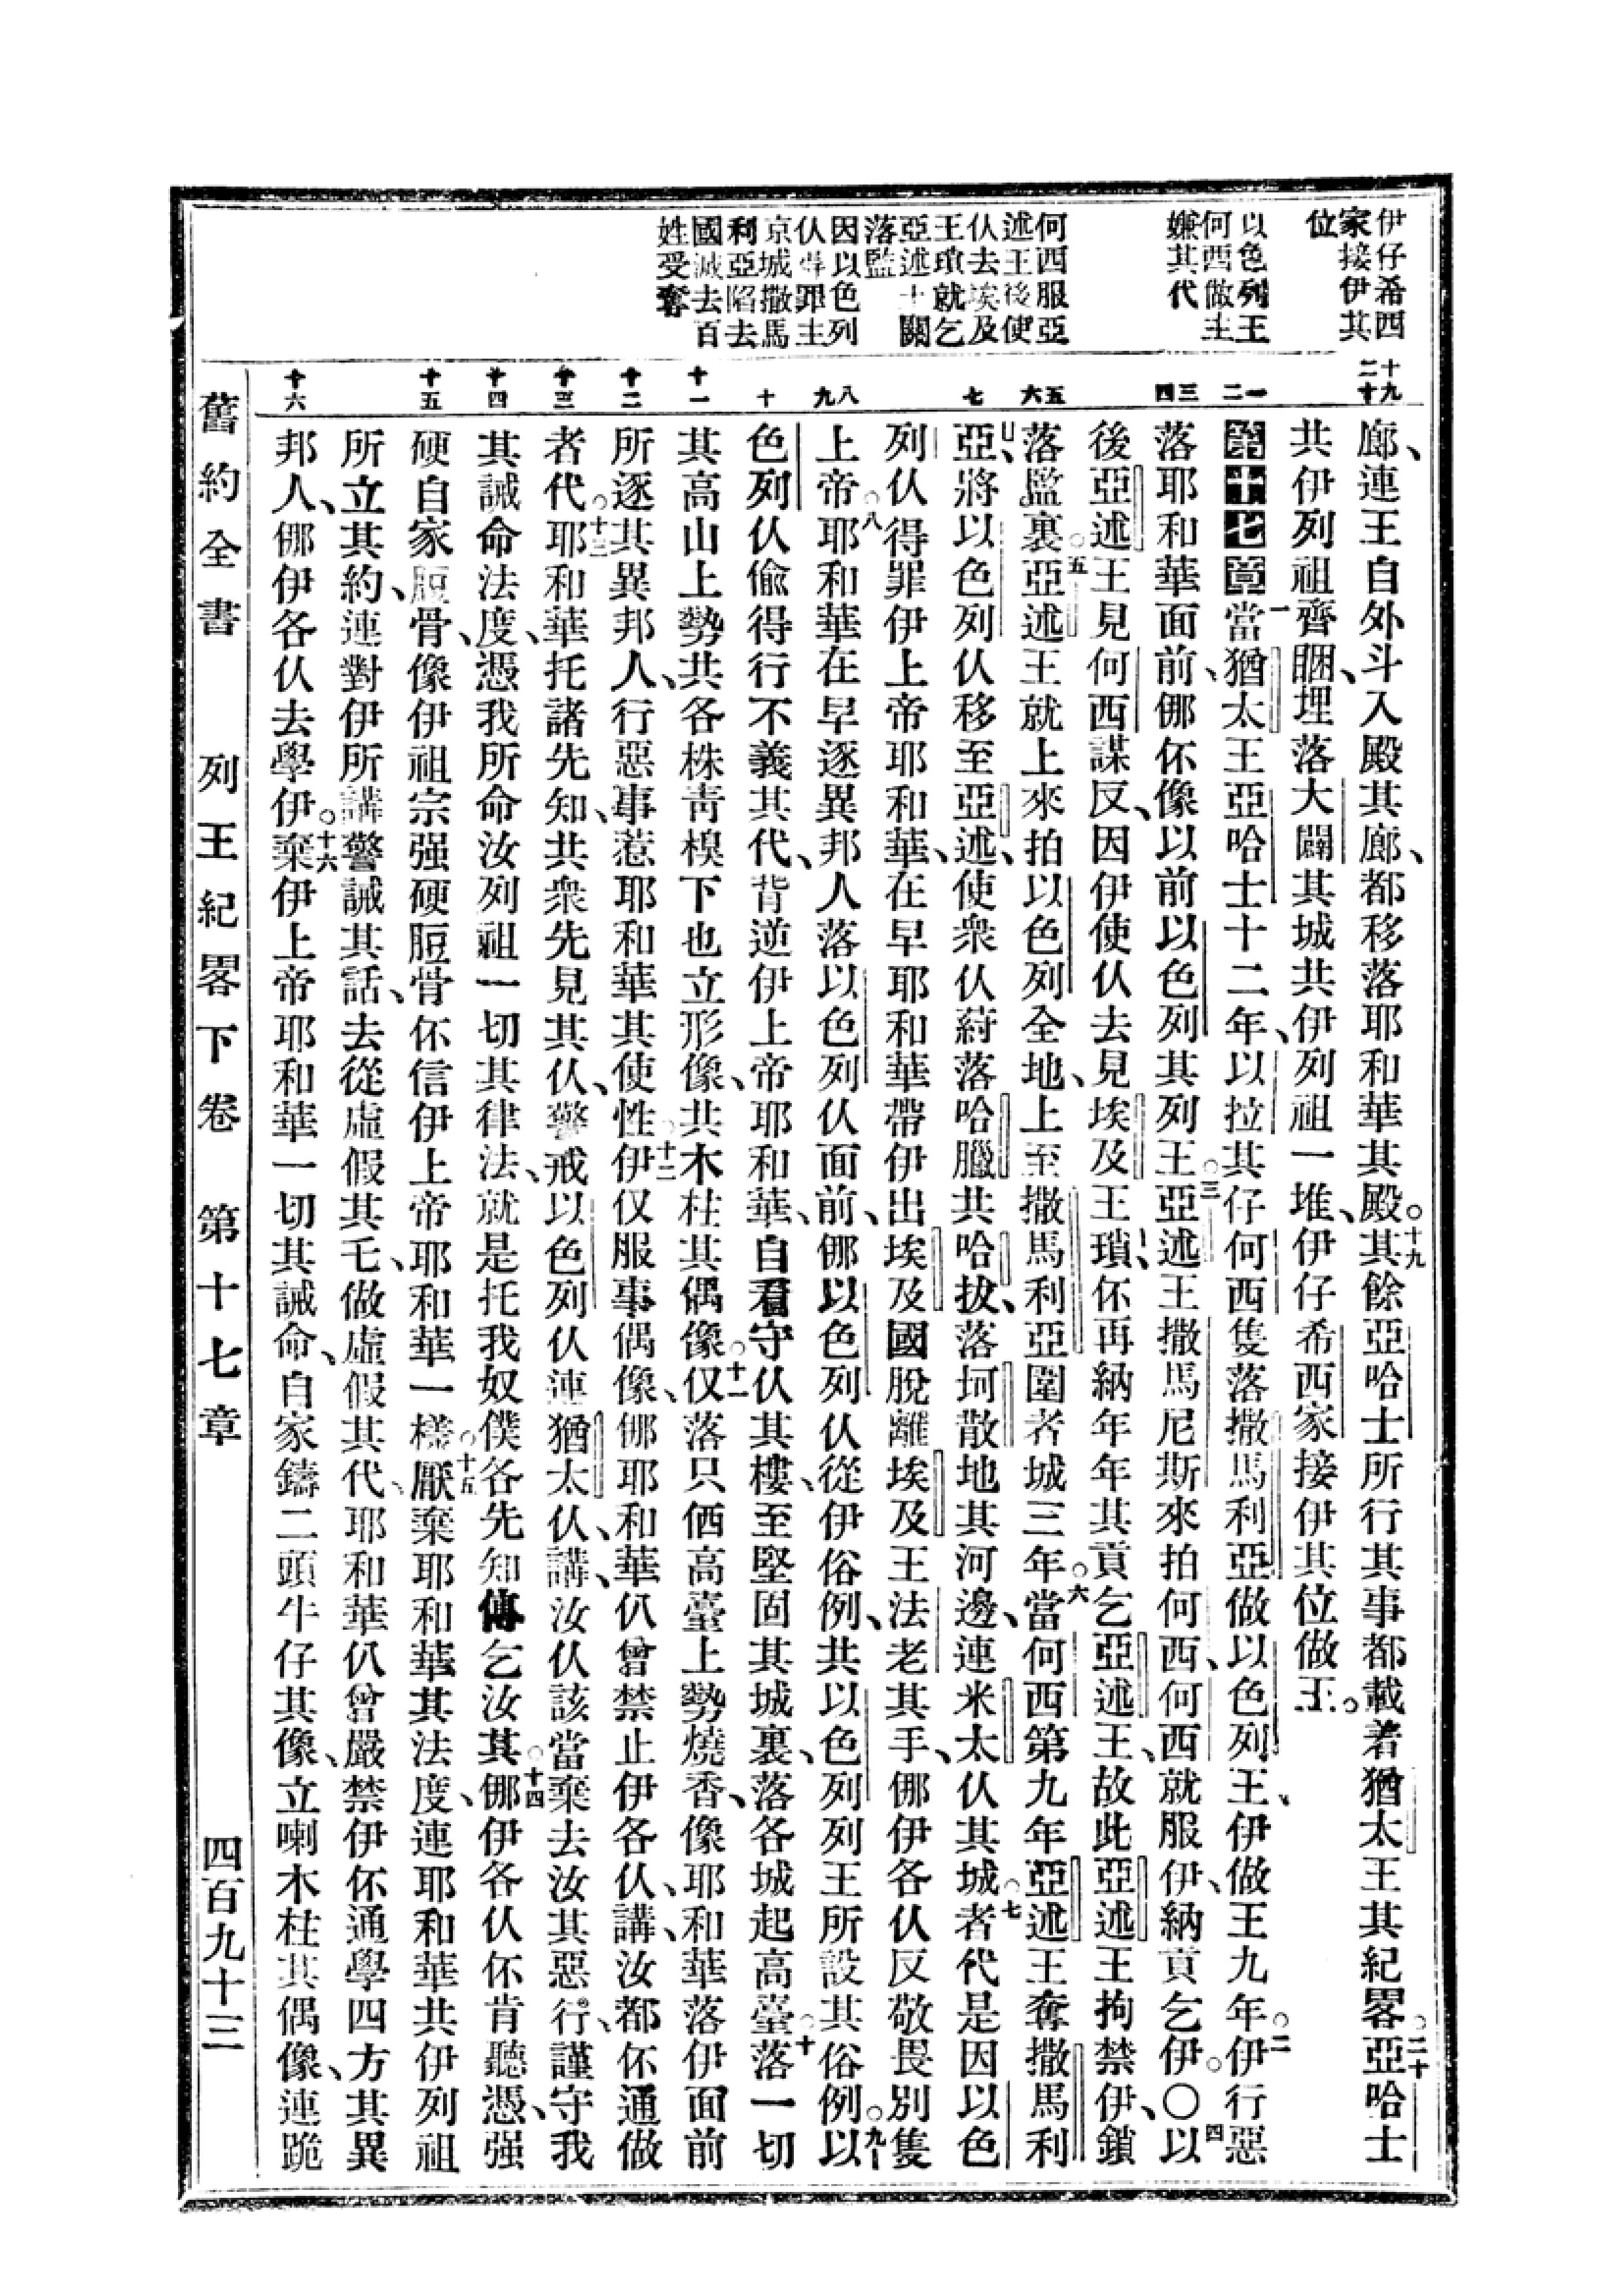 伊仔希西
家接伊其
位
以色列王
何西做主
嫌其代
何西服亞
述王後使
仈去埃及
王瑣就乞
亞述王關
落監
因以色列
仈得罪主
京城撒馬
利亞陷去
國滅去百
姓受奪
十九
二十
一
二
三
四
五
六
七
八
九
十
十一
十二
十三
十四
十五
十六
廊、連王自外斗入殿其廊、都移落耶和華其殿。十九其餘亞哈士所行其事都載着猶太王其紀畧。二十亞哈士
共伊列祖齊睏、埋落大闢其城共伊列祖一堆、伊仔希西家接伊其位做王。
第十七章一當猶太王亞哈士十二年、以拉其仔何西隻落撒馬利亞做以色列王、伊做王九年。二伊行惡
落耶和華面前、㑚伓像以前以色列其列王。三亞述王撒馬尼斯來拍何西、何西就服伊、納貢乞伊。〇四以
後亞述王見何西謀反、因伊使仈去見埃及王瑣、伓再納年年其貢乞亞述王、故此亞述王拘禁伊、鎖
落監裏。五亞述王就上來拍以色列全地、上至撒馬利亞圍者城三年。六當何西第九年亞述王奪撒馬利
亞、將以色列仈移至亞述、使衆仈蒔落哈臘共哈拔、落坷散地其河邊、連米太仈其城。七者代是因以色
列仈得罪伊上帝耶和華、在早耶和華帶伊出埃及國脫離埃及王法老其手、㑚伊各仈反敬畏別隻
上帝。八耶和華在早逐異邦人落以色列仈面前、㑚以色列仈從伊俗例、共以色列列王所設其俗例。九以
色列仈偸得行不義其代、背逆伊上帝耶和華、自看守仈其樓、至堅固其城裏、落各城起高臺。十落一切
其高山上勢共各株靑樹下也立形像、共木柱其偶像。十一仅落只倆高臺上勢燒香、像耶和華落伊面前
所逐其異邦人、行惡事惹耶和華其使性。十二伊仅服事偶像、㑚耶和華仈曾禁止伊各仈、講、汝都伓通做
者代。十三耶和華托諸先知、共衆先見其仈、警戒以色列仈連猶太仈、講、汝仈該當棄去汝其惡行、謹守我
其誡命法度、憑我所命汝列祖一切其律法、就是托我奴僕各先知傳乞汝其。十四㑚伊各仈伓肯聽憑、强
硬自家脰骨、像伊祖宗强硬脰骨伓信伊上帝耶和華一樣。十五厭棄耶和華其法度、連耶和華共伊列祖
所立其約、連對伊所講警誡其話、去從虛假其乇、做虛假其代、耶和華仈曾嚴禁伊伓通學四方其異
邦人、㑚伊各仈去學伊。十六棄伊上帝耶和華一切其誡命、自家鑄二頭牛仔其像、立喇木柱其偶像、連跪
舊約全書　列王紀畧下卷　第十七章　四百九十三